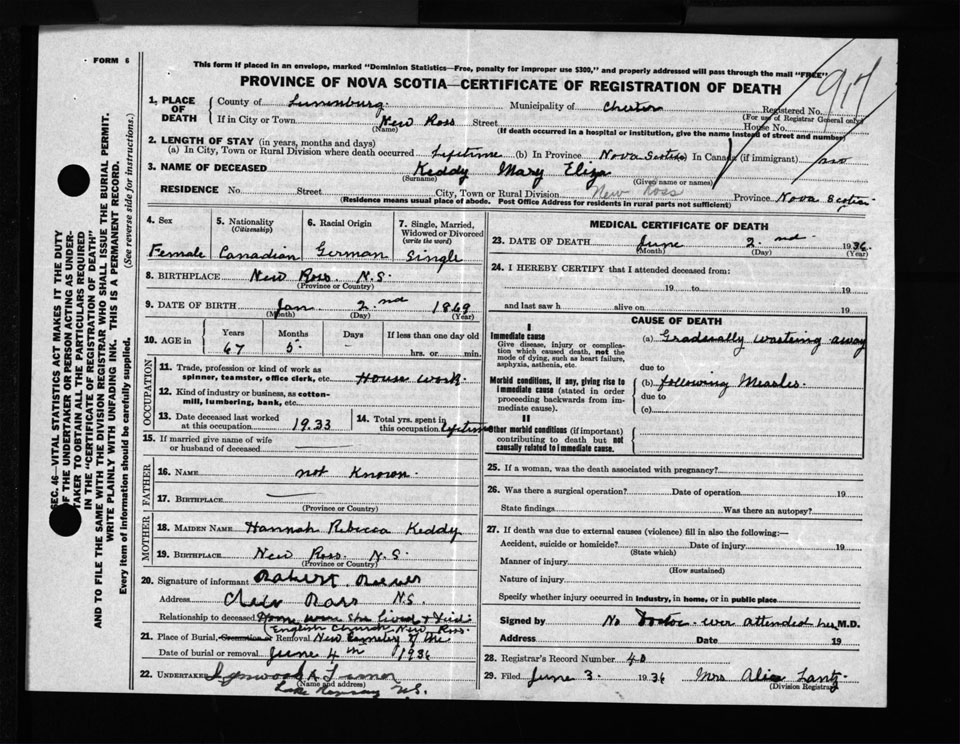 FORM 6
This form if placed in an envelope, marked "Dominion Statistics—Free, penalty for improper use $300," and properly addressed will pass through the mail "FREE"
PROVINCE OF NOVA SCOTIA—CERTIFICATE OF REGISTRATION OF DEATH
917
1, PLACE OF DEATH
County of Lunenburg. Municipality of Chester Registered No.
(For use of Registrar General only)
If in City or Town New Ross Street House No.
(Name) (If death occurred in a hospital or institution, give the name instead of street and number)
2. LENGTH OF STAY (in years, months and days)
(a) In City, Town or Rural Division where death occurred Lifetime (b) In Province Nova Scotia In Canada (if immigrant) no
3. NAME OF DECEASED Keddy Mary Eliza
(Surname) (Given name or names)
RESIDENCE No. Street City, Town or Rural Division New Ross Province Nova Scotia
(Residence means usual place of abode. Post Office Address for residents in rural parts not sufficient)
4. Sex
Female
5. Nationality
(Citizenship)
Canadian
6. Racial Origin
German
7. Single, Married, Widowed or Divorced
(write the word)
Single
8. BIRTHPLACE New Ross. N.S.
(Province or Country)
9. DATE OF BIRTH Jan 2 nd 1869
(Month) (Day) (Year)
10. AGE in
Years Months Days If less than one day old
67 5 – hrs. or min.
OCCUPATION
11. Trade, profession or kind of work as spinner, teamster, office clerk, etc. House work.
12. Kind of industry or business, as cotton-mill, lumbering, bank, etc.
13. Date deceased last worked at this occupation 1933
14. Total yrs. spent in this occupation lifetime
15. If married give name of wife or husband of deceased
FATHER
16. NAME not Known.
17. BIRTHPLACE
MOTHER
18. MAIDEN NAME Hannah Rebecca Keddy
19. BIRTHPLACE New Ross. N.S.
(Province or Country)
20. Signature of informant Robert
Address New Ross N.S.
Relationship to deceased Home were she lived & died
English Church New Ross.
21. Place of Burial, Cremation or Removal New Cemetery of the
Date of burial or removal June 4 th 1936
22. UNDERTAKER
(Name and address)
Lake Ramsay N.S.
MEDICAL CERTIFICATE OF DEATH
23. DATE OF DEATH June 2 nd 1936
(Month) (Day) (Year)
24. I HEREBY CERTIFY that I attended deceased from:
19 to 19
and last saw h alive on 19
CAUSE OF DEATH
I
Immediate cause
Give disease, injury or complication which caused death, not the mode of dying, such as heart failure, asphyxia, asthenia, etc.
(a) Graderally wasting away
due to
Morbid conditions, if any, giving rise to immediate cause (stated in order proceeding backwards from immediate cause).
(b) following Measles.
due to
(c)
II
Other morbid conditions (if important) contributing to death but not causally related to immediate cause.
25. If a woman, was the death associated with pregnancy?
26. Was there a surgical operation? Date of operation 19
State findings Was there an autopsy?
27. If death was due to external causes (violence) fill in also the following:—
Accident, suicide or homicide? Date of injury 19
(State which)
Manner of injury
(How sustained)
Nature of injury
Specify whether injury occurred in industry, in home, or in public place
Signed by No Doctor ever attended her M.D.
Address Date 19
28. Registrar's Record Number 40
29. Filed June 3. 1936 Mrs Alice Lantz
(Division Registrar)
SEC. 46—VITAL STATISTICS ACT MAKES IT THE DUTY OF THE UNDERTAKER OR PERSON ACTING AS UNDERTAKER TO OBTAIN ALL THE PARTICULARS REQUIRED IN THE "CERTIFICATE OF REGISTRATION OF DEATH" AND TO FILE THE SAME WITH THE DIVISION REGISTRAR WHO SHALL ISSUE THE BURIAL PERMIT.
WRITE PLAINLY WITH UNFADING INK. THIS IS A PERMANENT RECORD.
Every item of information should be carefully supplied. (See reverse side for instructions.)